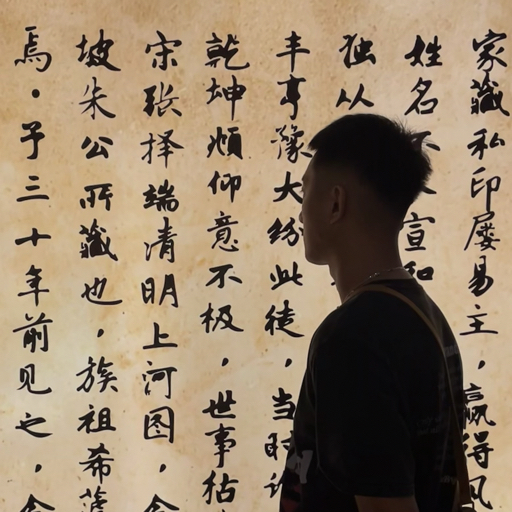 家藏私印屡易主，赢得风
姓名不宣和
独从
丰亨豫大纷此徒，当时
乾坤頫仰意不极，世事枯
宋张择端清明上河图，
坡朱公所藏也，族祖希
焉。予三十年前见之，